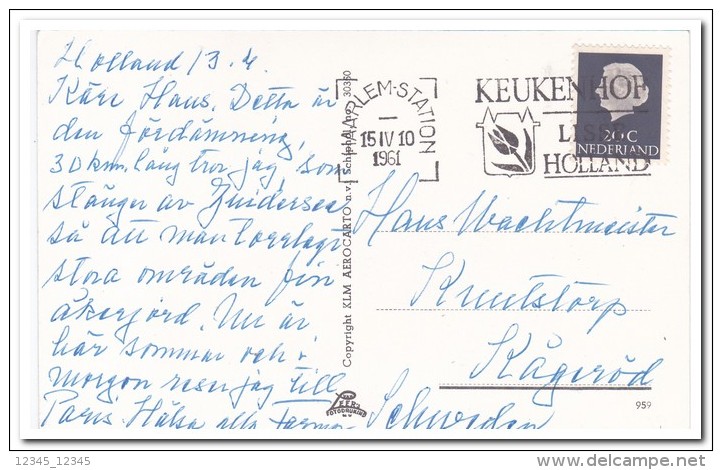 Holland 13.4.
Käre Hans. Detta är
den fördämning,
30 km. lång tror jag, som
stänger av Zuidersee
så att man torrlagt
stora områden fin
åkerjord. Nu är
här sommar och i
morgon reser jag till
Paris. Hälsa alla
Copyright KLM AEROCARTO n.v. Schiphol, no 30360
HAARLEM-STATION
15 IV 10
1961
KEUKENHOF
LISSE
HOLLAND
20 C
NEDERLAND
Hans Wachtmeister
Knutstorp
Kågeröd
Schweden
VAN LEER'S
FOTODRUKIND
959
12345_12345
www.delcampe.net